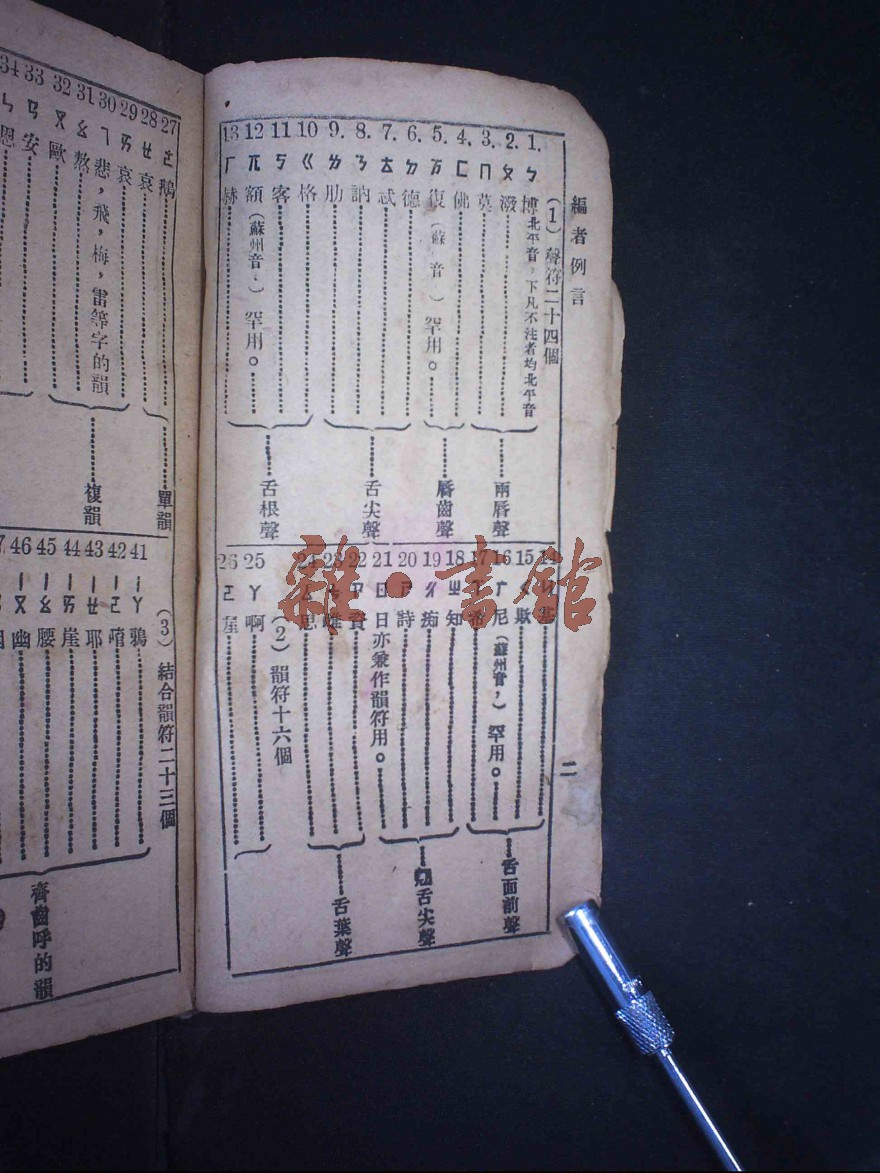 編者例言
二
(1) 聲符二十四個
1. ㄅ 博北平音，下凡不注者均北平音
2. ㄆ 潑
3. ㄇ 莫
兩唇聲
4. ㄈ 佛
5. 万 復（蘇 音）罕用。
唇齒聲
6. ㄉ 德
7. ㄊ 忒
8. ㄋ 訥
9. ㄌ 肋
舌尖聲
10 ㄍ 格
11 ㄎ 客
12 兀 額（蘇州音，）罕用。
13 ㄏ 赫
舌根聲
14
15 欺
16 广 尼（蘇州音，）罕用。
17
舌面前聲
18 ㄓ 知
19 ㄔ 痴
20 ㄕ 詩
21 ㄖ 日亦兼作韻符用。
舌尖聲
22 ㄗ 資
23 ㄘ 雌
24 ㄙ 思
舌葉聲
(2) 韻符十六個
25 ㄚ 啊
26 ㄛ
27 ㄜ 鵝
28 ㄝ 哀
單韻
29 ㄞ 哀
30 ㄟ 悲，飛，梅，雷等字的韻
31 ㄠ 熬
32 ㄡ 歐
複韻
33 ㄢ 安
34 ㄣ 恩
(3) 結合韻符二十三個
41 ㄧㄚ 鴉
42 ㄧㄛ 唷
43 ㄧㄝ 耶
44 ㄧㄞ 崖
45 ㄧㄠ 腰
46 ㄧㄡ 幽
齊齒呼的韻
雜·書館